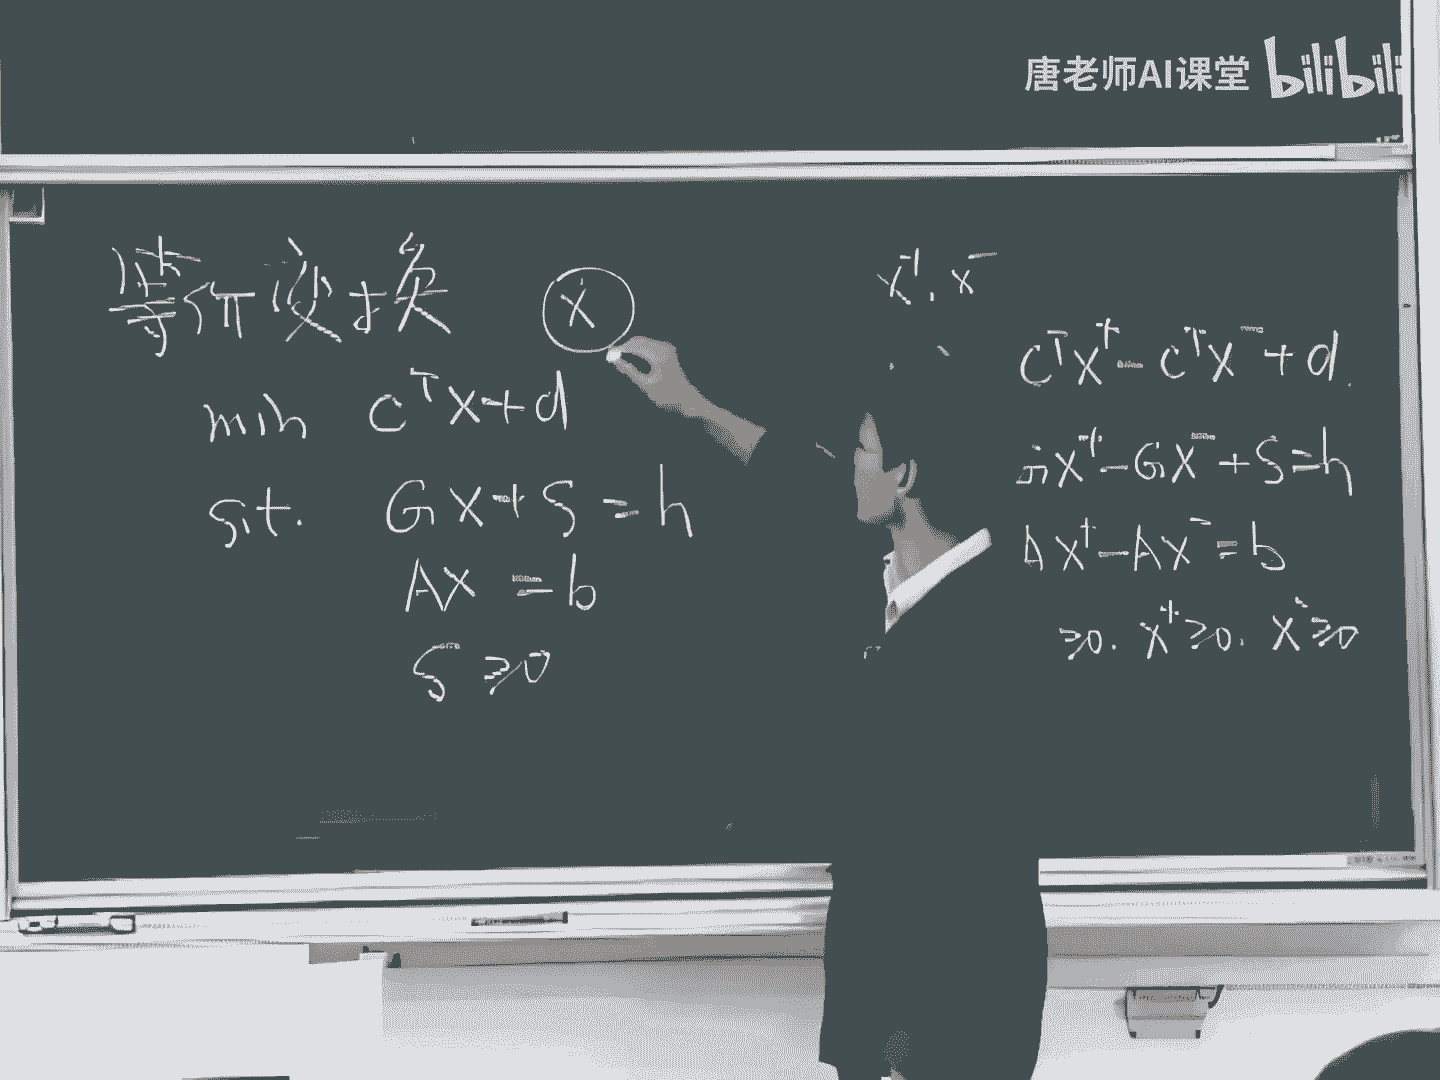 唐老师AI课堂 bilibili
等价变换
X
min cᵀx+d
s.t. Gx+s=h
Ax=b
s≥0
x⁺, x⁻
cᵀx⁺-cᵀx⁻+d
Gx⁺-Gx⁻+s=h
Ax⁺-Ax⁻=b
≥0. x⁺≥0. x⁻≥0